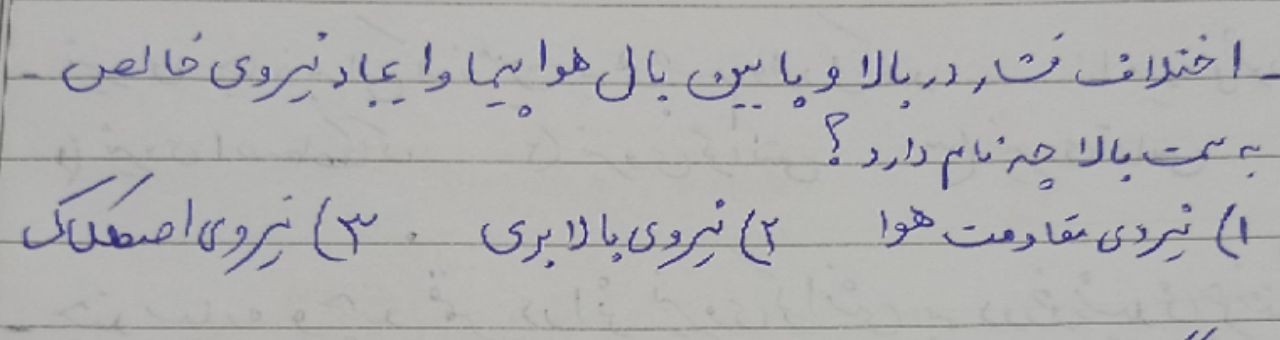 - اختلاف فشار در بالا و پایین بال هواپیما و ایجاد نیروی خالص -
به سمت بالا چه نام دارد؟
۱) نیروی مقاومت هوا ۲) نیروی بالابری ۳) نیروی اصطکاک